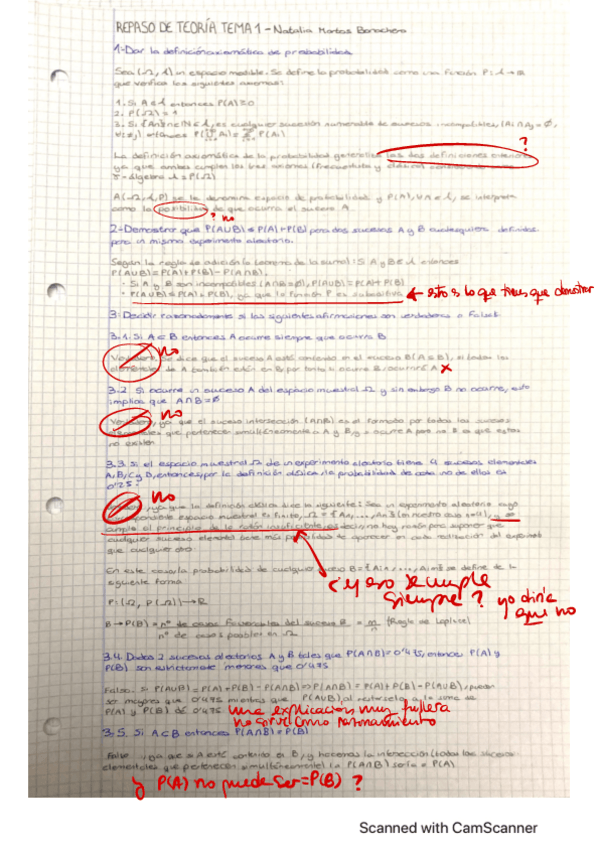 REPASO DE TEORÍA TEMA 1 - Natalia
1-Dar la definición axiomática de probabilidad
Sea (Ω, A) un espacio medible. Se define la probabilidad como una función P: A → R
que verifica los siguientes axiomas:
1. Si A ∈ A entonces P(A) ≥ 0
2. P(Ω) = 1
3. Si {An} n ∈ N ∈ A, es cualquier sucesión numerable de sucesos incompatibles, (Ai ∩ Aj = Ø,
∀ i ≠ j) entonces
?
La definición axiomática de la probabilidad generaliza las dos definiciones anteriores
ya que ambas cumplen los tres axiomas (frecuentista y clásica)
σ-álgebra A = P(Ω)
A (Ω, A, P) se la denomina espacio de probabilidad y P(A), ∀ A ∈ A, se interpreta
como la posibilidad de que ocurra el suceso A.
? no
2-Demostrar que P(A∪B) ≤ P(A)+P(B) para dos sucesos A y B cualesquiera definidos
para un mismo experimento aleatorio.
Según la regla de adición (teorema de la suma): Si A y B ∈ A entonces
P(A∪B) = P(A)+P(B)-P(A∩B).
· Si A y B son incompatibles (A∩B=Ø), P(A∪B) = P(A)+P(B)
· P(A∪B) ≤ P(A)+P(B), ya que la función P es subaditiva
← esto es lo que tienes que demostrar
3-Decidir razonadamente si las siguientes afirmaciones son verdaderas o falsas:
3.1. Si A ⊂ B entonces A ocurre siempre que ocurra B
no
se dice que el suceso A está contenido en el suceso B (A ⊂ B), si todos los
elementos de A también están en B, por tanto si ocurre B, ocurrirá A x
3.2 Si ocurre un suceso A del espacio muestral Ω y sin embargo B no ocurre, esto
implica que A∩B=Ø
no
ya que el suceso intersección (A∩B) es el formado por todos los sucesos
elementales que pertenecen simultáneamente a A y B, y si ocurre A pero no B es que estos
no existen
3.3. Si el espacio muestral Ω de un experimento aleatorio tiene 4 sucesos elementales
A, B, C y D, entonces, por la definición clásica, la probabilidad de cada uno de ellos es
0'25?
no
ya que la definición clásica dice lo siguiente: Sea un experimento aleatorio cuyo
correspondiente espacio muestral es finito, y se
cumple el principio de la razón insuficiente, es decir, no hay razón para suponer que
cualquier suceso elemental tiene más probabilidad de aparecer en cada realización del experimento
que cualquier otro.
¿y eso se cumple
siempre? yo diría
que no
En este caso, la probabilidad de cualquier suceso se define de la
siguiente forma:
P: (Ω, P(Ω)) → R
B → P(B) = nº de casos favorables del suceso B = (Regla de Laplace)
nº de casos posibles en Ω
3.4. Dados 2 sucesos aleatorios A y B tales que P(A∩B)=0'475, entonces P(A) y
P(B) son estrictamente menores que 0'475
Falso. Si P(A∪B) = P(A)+P(B)-P(A∩B) => P(A∩B) = P(A)+P(B)-P(A∪B), pueden
ser mayores que 0'475 mientras que P(A∪B), al restárselo a la suma de
P(A) y P(B) dé 0'475
Una explicación muy
no sirve como razonamiento
3.5. Si A ⊂ B entonces P(A∩B) = P(B)
Falso, ya que si A está contenido en B, y hacemos la intersección (todos los sucesos
elementales que pertenecen simultáneamente) la P(A∩B) sería = P(A)
y P(A) no puede ser = P(B) ?
Scanned with CamScanner